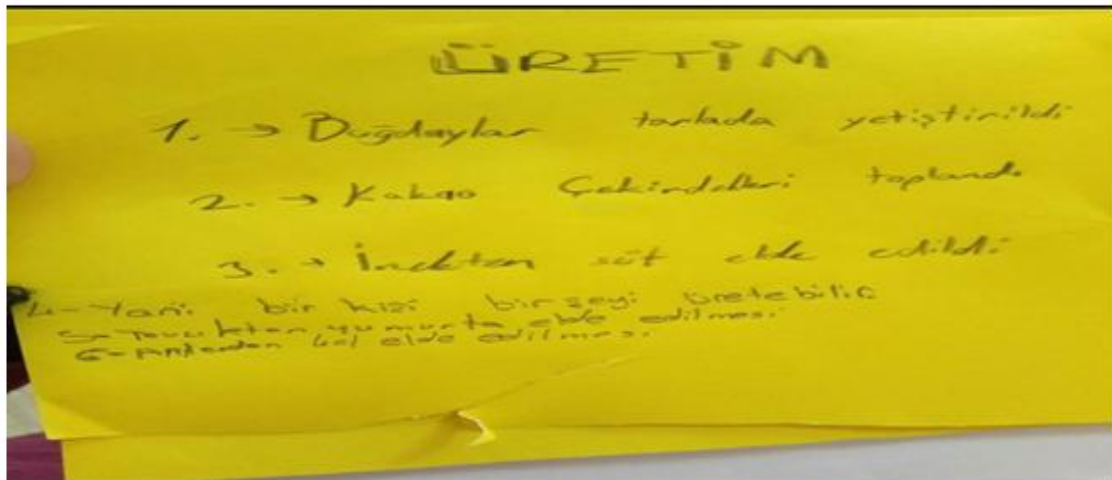 ÜRETİM
1. → Buğdaylar tarlada yetiştirildi
2. → Kakao Çekirdekleri toplandı
3. → İnekten süt elde edildi
4-Yani bir kişi bir şeyi üretebilir
5-Tavuktan yumurta elde edilmesi
6- elde edilmesi